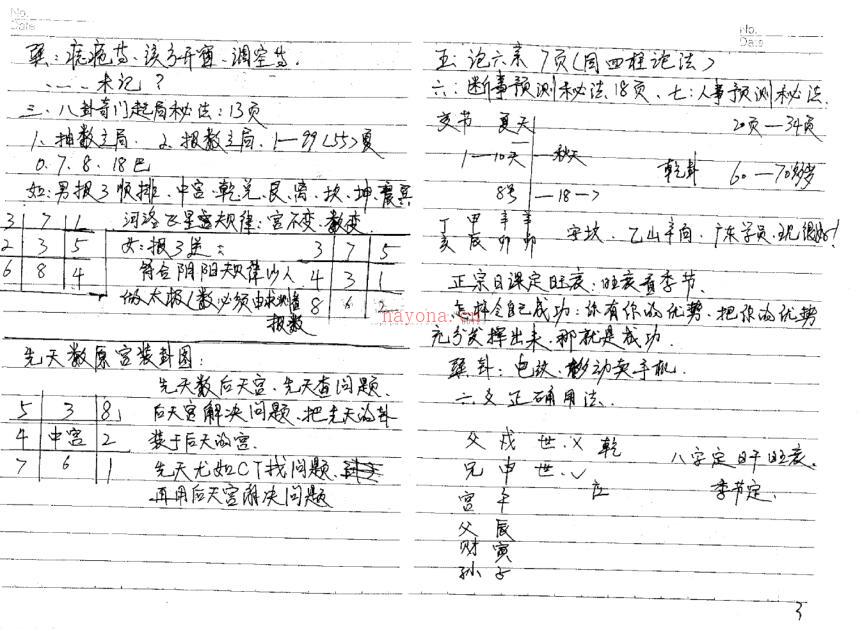 No.
Date
巽：疣疮等、该方开窗、调空等.
、…… 未记？
三、八卦奇门起局秘法：13页
1、抽数立局. 2、报数立局. 1—99<55>页
0.7.8.18巴
如：男报3顺排、中宫、乾、兑、艮、离、坎、坤、震、巽
河洛飞星宫规律：宫不变、数变
3 7 1
2 3 5
6 8 4
女：报3逆：
3 7 5
4 3 1
8 6 2
符合阴阳规律以人
做太极（数必须由求测者
报数
先天数原宫装卦图：
先天数后天宫、先天查问题.
5 3 8
4 中宫 2
7 6 1
后天宫解决问题、把先天的卦
装于后天的宫.
先天尤如CT找问题、
再用后天宫解决问题
No.
Date
五：论六亲 7页（同四柱论法）
六：断事预测秘法.18页、七：人事预测秘法.
20页—34页
交节 夏天
1—10天 —秋天
8号 —18—>
乾卦 60—70多岁
丁 甲 辛 辛
亥 辰 卯 卯
乙山辛向、广东学员、现很好！
正宗日课定旺衰：旺衰看季节.
怎样令自己成功：你有你的优势、把你的优势
充分发挥出来、那就是成功.
巽卦：电 移动卖手机.
六爻正确用法.
父 戌 世.× 乾
兄 申 世.✓
官 午 应
父 辰
财 寅
孙 子
八字定日干旺衰.
季节定.
nayona.cn
3